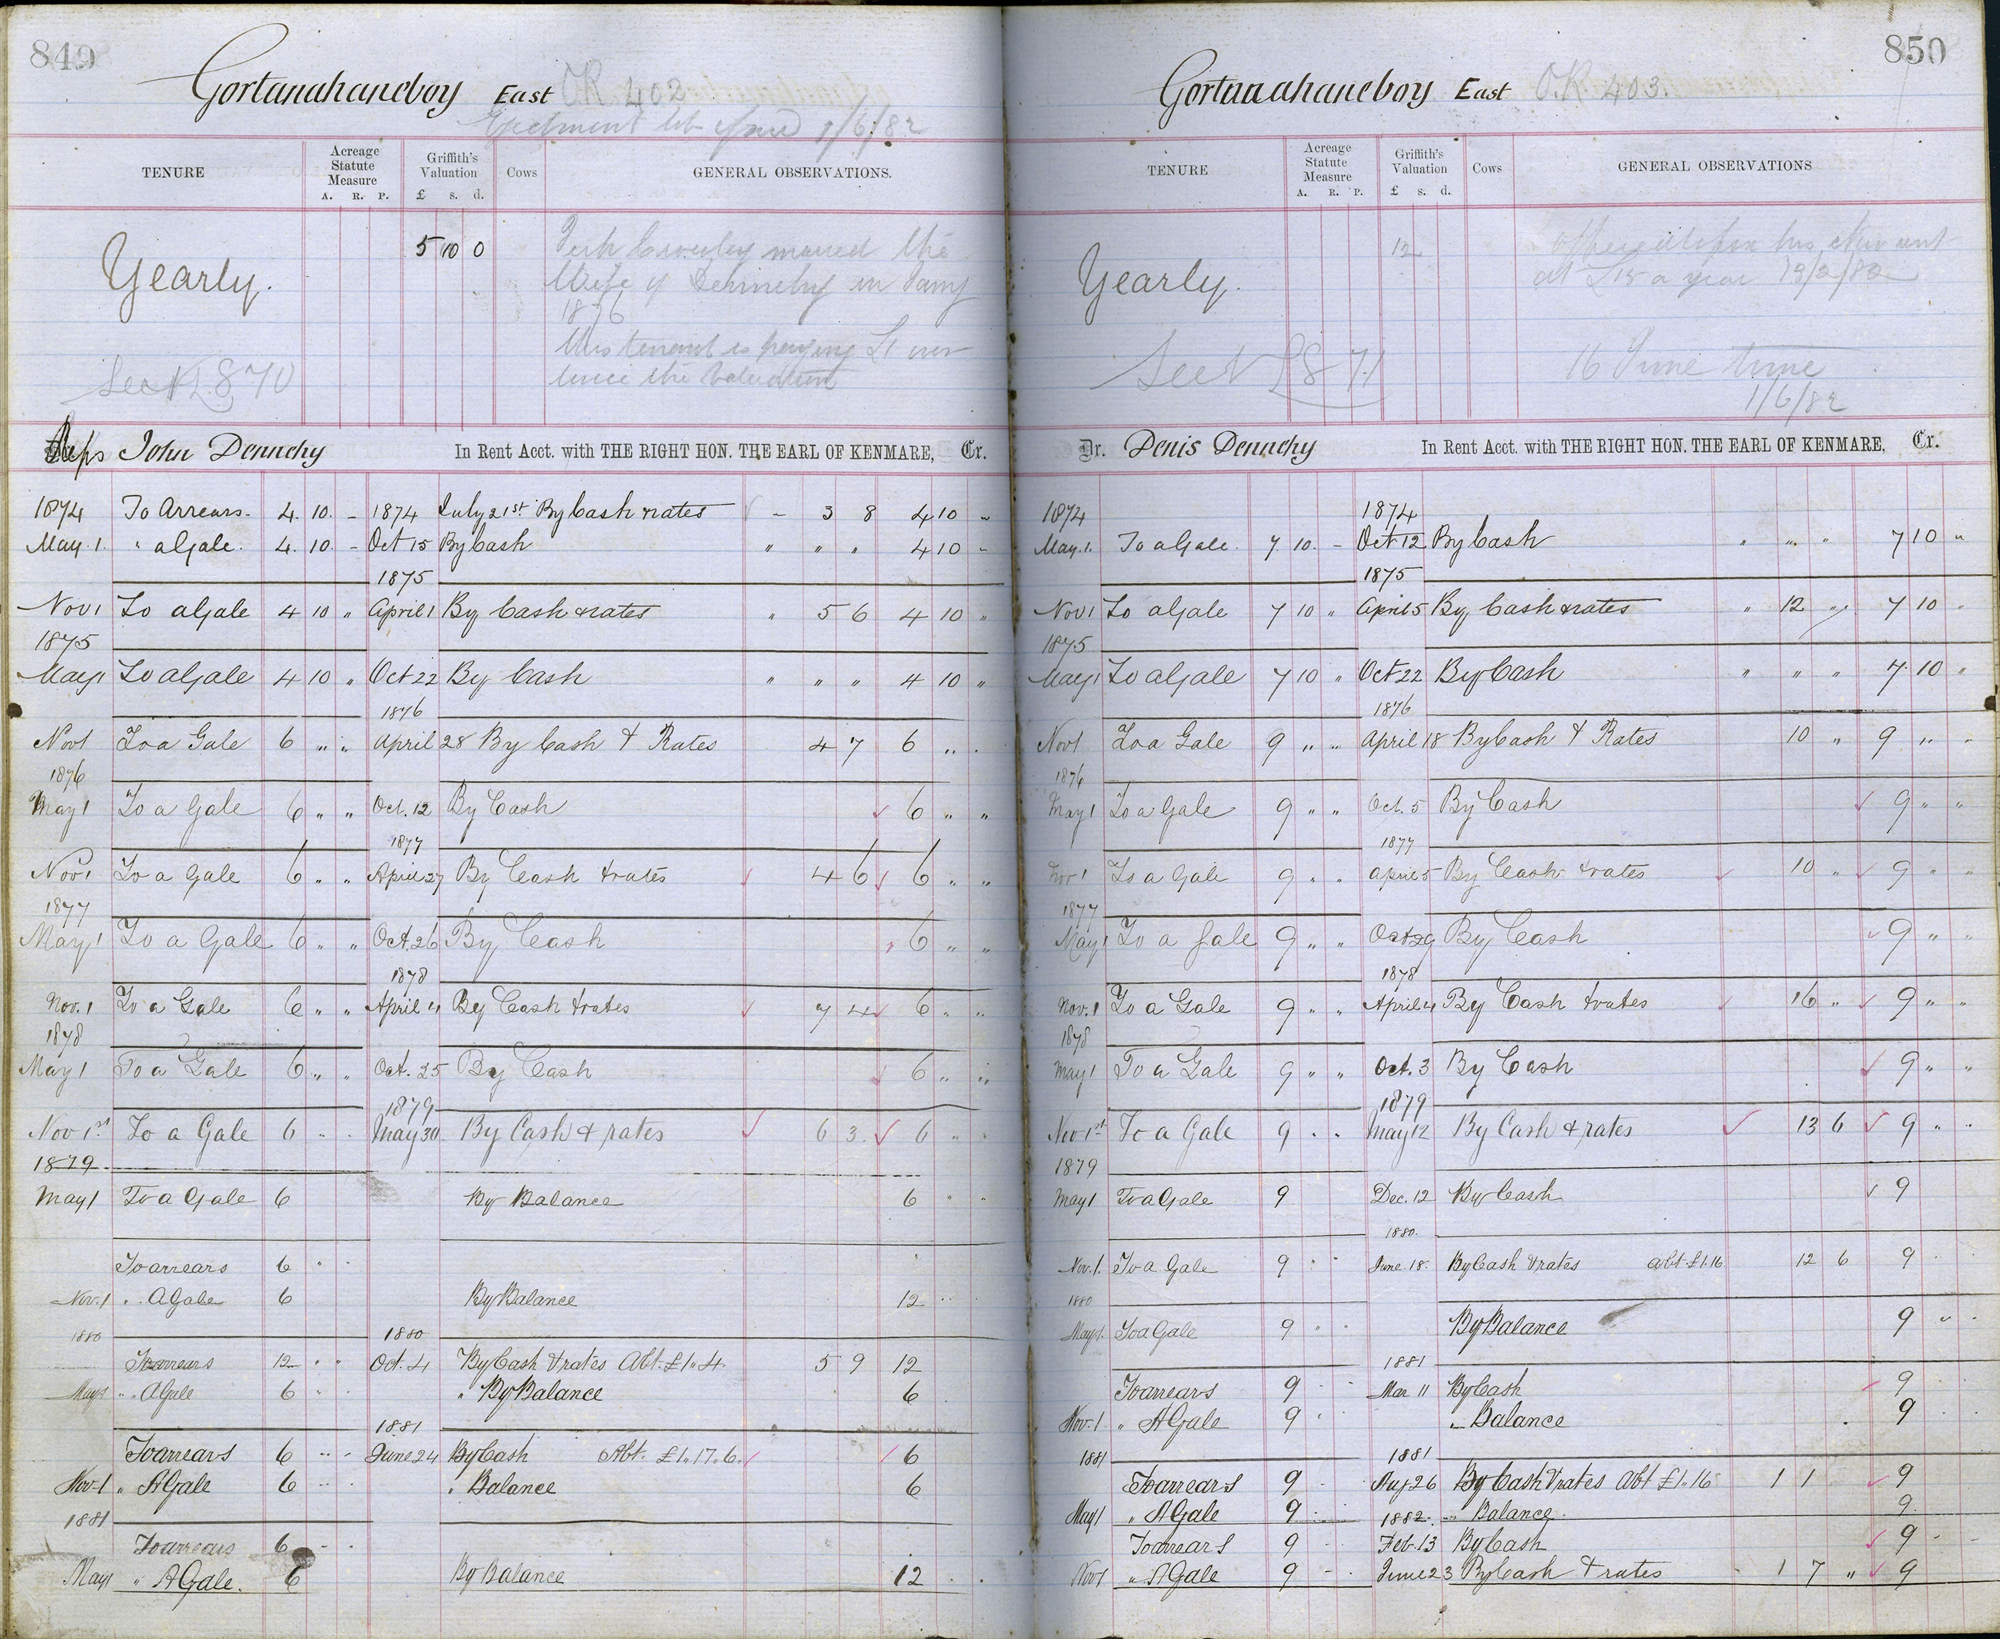 849
Gortanahaneboy East O.R 402
Ejectment 1/6/82
TENURE
Acreage Statute Measure
A. R. P.
Griffith's Valuation
£ s. d.
Cows
GENERAL OBSERVATIONS.
Yearly.
5 10 0
married the
Wife of Dennehy in
1876
this tenant is paying £1 over
the valuation
870
Reps John Dennehy In Rent Acct. with THE RIGHT HON. THE EARL OF KENMARE, Cr.
1874 To Arrears. 4. 10. - 1874 July 21st By Cash & rates - 3 8 4 10 "
May. 1. " a Gale. 4. 10. - Oct 15 By Cash " " " 4 10 -
1875
Nov 1 To a Gale 4 10 " April 1 By Cash & rates " 5 6 4 10 "
1875
May 1 To a Gale 4 10 " Oct 22 By Cash " " " 4 10 "
1876
Nov 1 To a Gale 6 " " April 28 By Cash & Rates 4 7 6 " .
1876
May 1 To a Gale 6 " " Oct. 12 By Cash 6 " "
1877
Nov 1 To a Gale 6 " " April 27 By Cash & rates 4 6 6 " "
1877
May 1 To a Gale 6 " " Oct. 26 By Cash 6 " "
1878
Nov. 1 To a Gale 6 " " April 4 By Cash & rates 7 4 6 " "
1878
May 1 To a Gale 6 " " Oct. 25 By Cash 6 " "
1879
Nov 1st To a Gale 6 " . May 30 By Cash & rates 6 3. 6 " .
1879
May 1 To a Gale 6 By Balance 6 " "
To arrears 6 " .
Nov. 1 " A Gale 6 By Balance 12 " .
1880 1880
To arrears 12 " " Oct. 4 By Cash & rates Abt. £1.4. 5 9 12
May 1 " A Gale 6 " . " By Balance 6
1881
To arrears 6 " - June 24 By Cash Abt. £1.17.6. 6
Nov-1 " A Gale 6 " . " Balance 6
1881
To arrears 6 - .
May 1 " A Gale. 6 By Balance 12 . .
850
Gortanahaneboy East O.R 403.
TENURE
Acreage Statute Measure
A. R. P.
Griffith's Valuation
£ s. d.
Cows
GENERAL OBSERVATIONS
Yearly.
12
his
at £15 a year 13/2/82
871
16 June time
1/6/82
Dr. Denis Dennehy In Rent Acct. with THE RIGHT HON. THE EARL OF KENMARE, Cr.
1874 1874
May. 1. To a Gale. 7 10. - Oct 12 By Cash " " " 7 10 "
1875
Nov 1 To a Gale 7 10 " April 5 By Cash & rates " 12 " 7 10 "
1875
May 1 To a Gale 7 10 " Oct 22 By Cash " " " 7 10 "
1876
Nov 1 To a Gale 9 " " April 18 By Cash & Rates 10 " 9 " "
1876
May 1 To a Gale 9 " " Oct. 5 By Cash 9 " "
1877
Nov 1 To a Gale 9 " " April 5 By Cash & rates 10 " 9 " "
1877
May 1 To a Gale 9 " " Oct 29 By Cash 9 " "
1878
Nov. 1 To a Gale 9 " " April 4 By Cash & rates 16 " 9 " "
1878
May 1 To a Gale 9 " " Oct. 3 By Cash 9 " "
1879
Nov 1st To a Gale 9 . . May 12 By Cash & rates 13 6 9 " .
1879
May 1 To a Gale 9 Dec. 12 By Cash 9
1880.
Nov. 1. To a Gale 9 " " June 18. By Cash & rates abt £1.16 12 6 9 .
1880
May 1. To a Gale 9 " " By Balance 9 " "
1881
To arrears 9 . . Mar 11 By Cash 9
Nov-1. " A Gale 9 . " Balance 9
1881 1881
To arrears 9 - Aug 26 By Cash & rates Abt £1.16 1 1 9
May 1 " A Gale 9 1882. " Balance. 9.
To arrears 9 - Feb. 13 By Cash 9 - -
Nov 1 " A Gale 9 - . June 23 By Cash & rates - 1 7 " 9